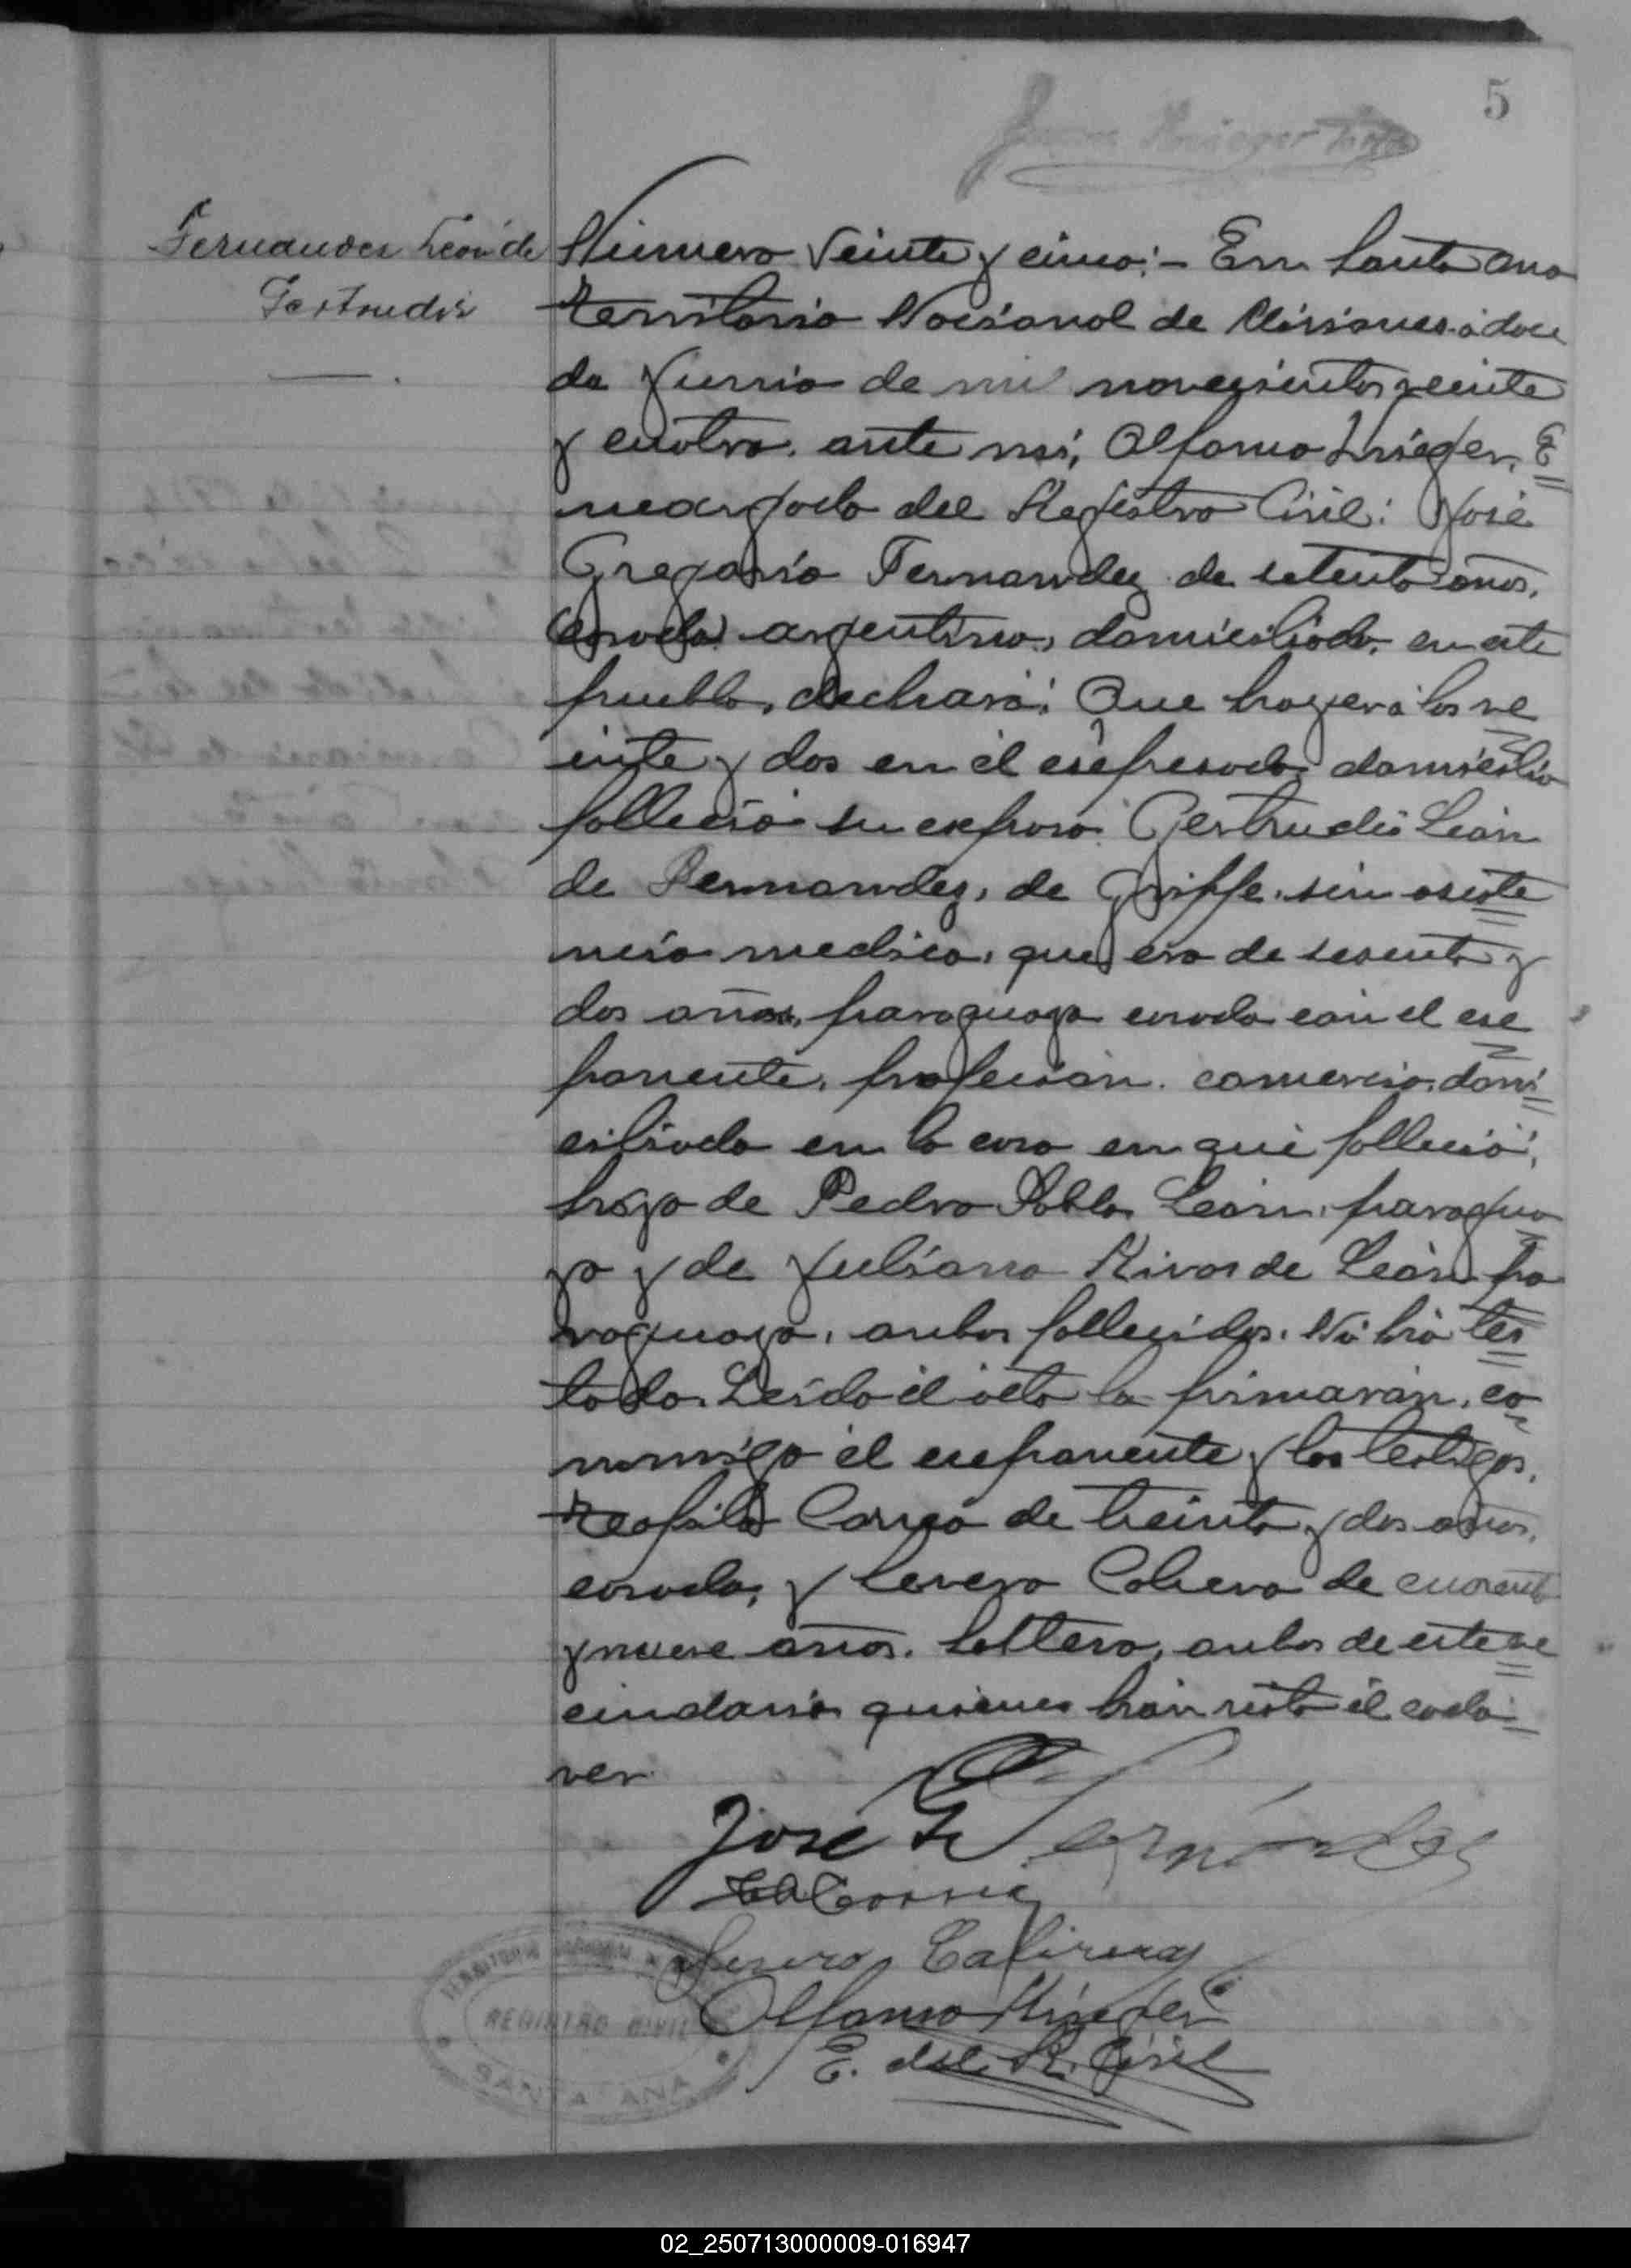 5
Fernandez León de
Gertrudis
Número Veinte y cinco:- En Santa Ana
Territorio Nacional de Misiones a doce
de Junio de mil novecientos veinte
y cuatro, ante mi, Alfonso Krieger, E
ncargado del Registro Civil: José
Gregorio Fernandez de setenta años,
casado, argentino, domiciliado, en este
pueblo, declaró: Que hayer á las ve
inte y dos en él expresado domicilio
falleció su esposa Gertrudis León
de Fernandez, de Grippe, sin asiste
ncia medica, que era de sesenta y
dos años, paraguaya casada con el ex
ponente, profesión comercio, domi
ciliada en la casa en que falleció,
hija de Pedro Pablo León, paragua
yo y de Juliana Rivas de León pa
raguaya, ambos fallecidos. No há tes
tado. Leída él acta la firmarán, co
nmigo él exponente y los testigos,
Teofilo Correa de treinta y dos años,
casado, y Severo Cabrera de cuarenta
y nueve años, soltero, ambos de este ve
cindario quienes hán visto él cadá
ver.
José G. Fernández
Severo Cabrera
Alfonso Krieger
E. del R. Civil
REGISTRO CIVIL
SANTA ANA
02_250713000009-016947